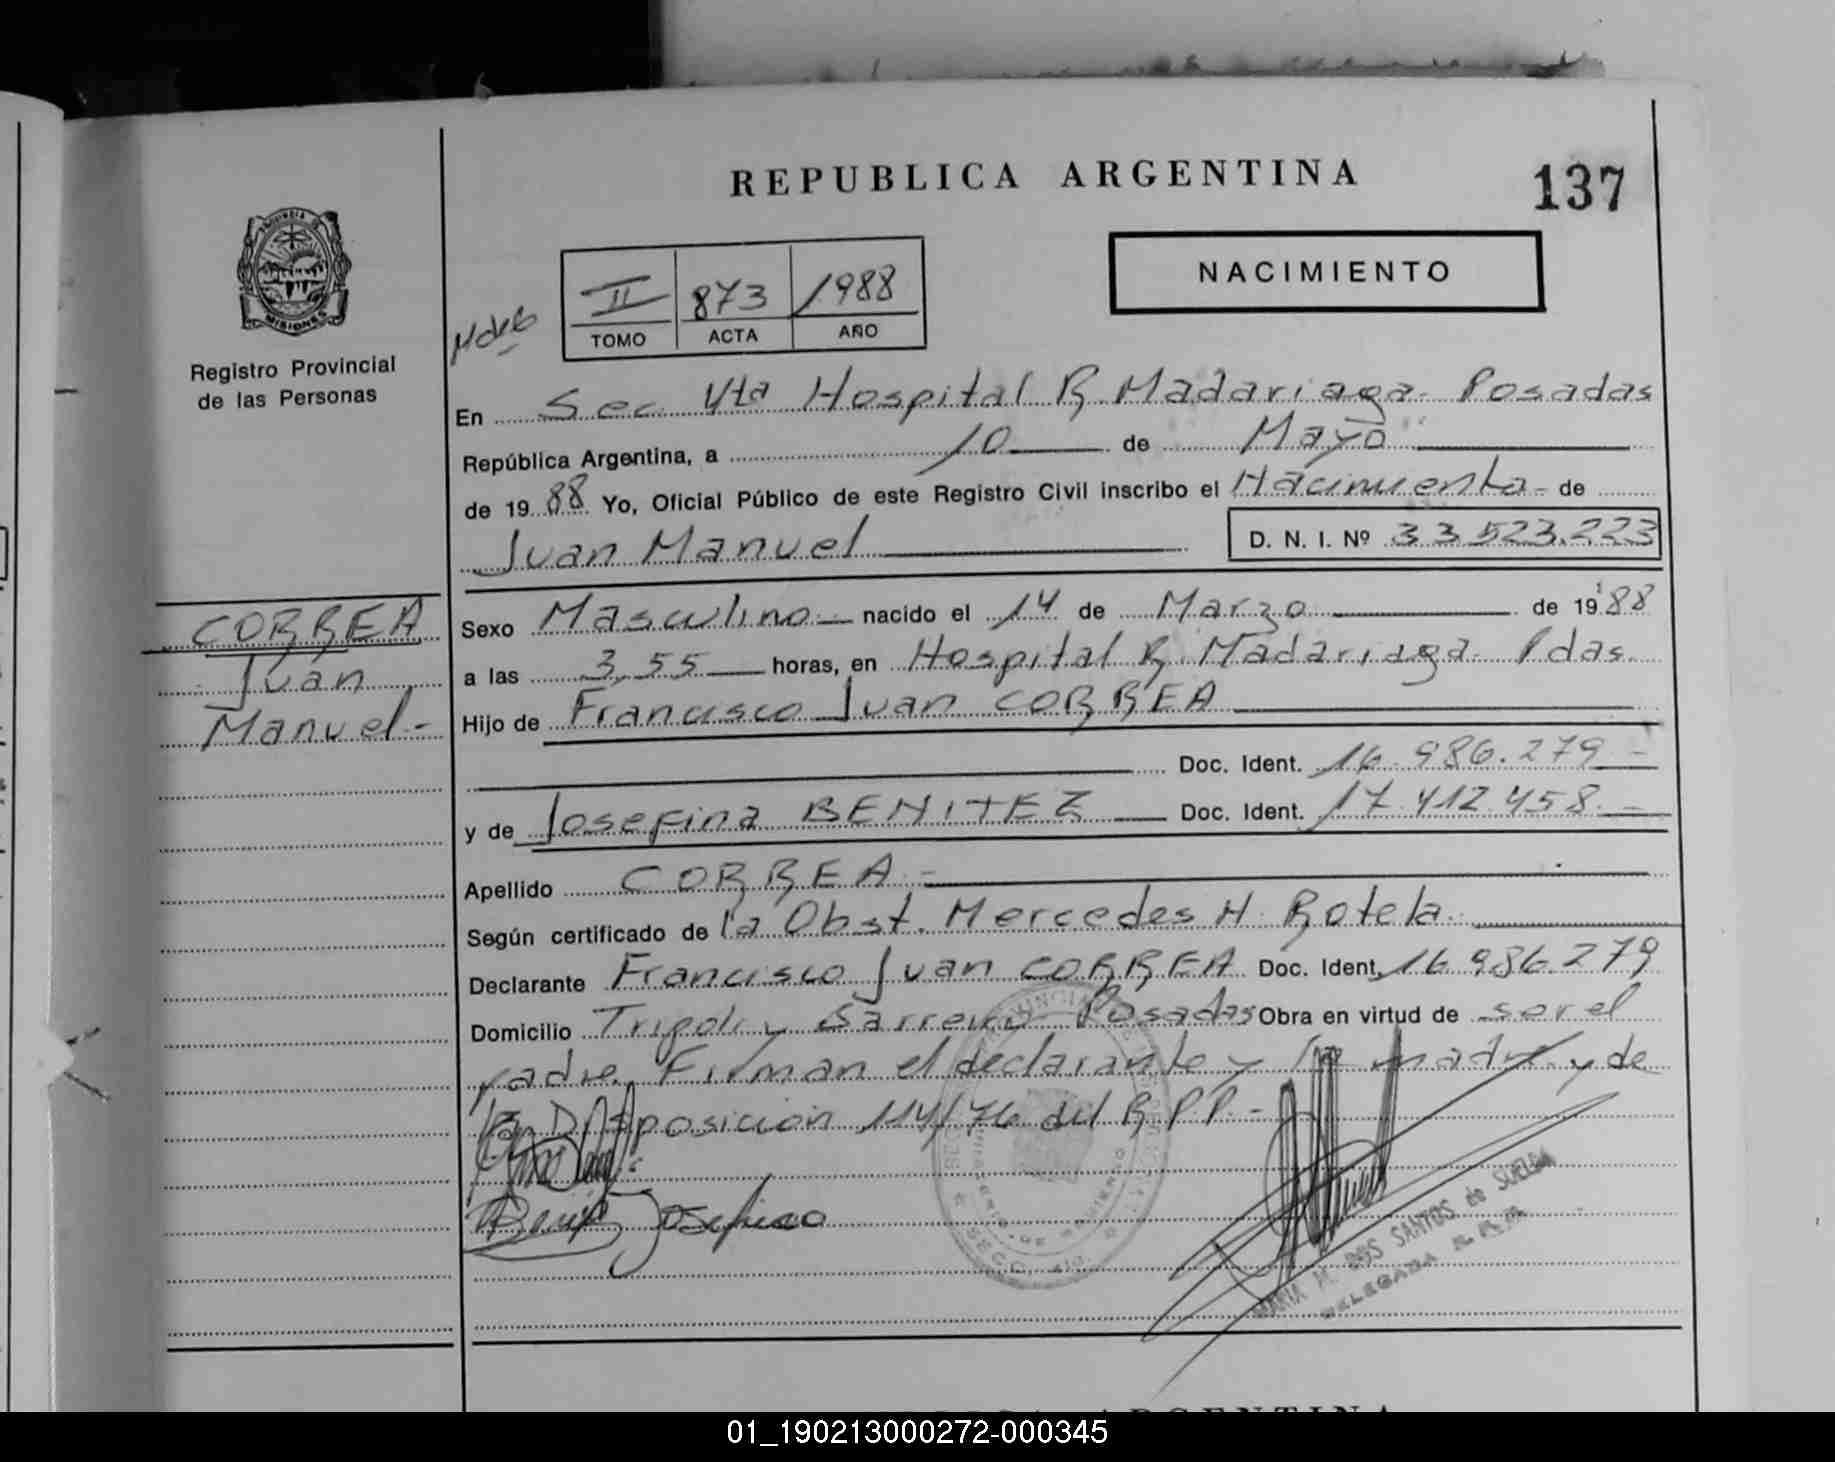 REPUBLICA ARGENTINA
137
PROVINCIA DE
MISIONES
Registro Provincial
de las Personas
NACIMIENTO
II 873 1988
TOMO ACTA AÑO
En Sec. 4ta Hospital R. Madariaga - Posadas
República Argentina, a 10 de Mayo
de 19 88 Yo, Oficial Público de este Registro Civil inscribo el Nacimiento - de
Juan Manuel D. N. I. Nº 33.523.223
CORREA
Juan
Manuel -
Sexo Masculino nacido el 14 de Marzo de 19 88
a las 3,55 horas, en Hospital R. Madariaga - Pdas.
Hijo de Francisco Juan CORREA
Doc. Ident. 16.986.279 -
y de Josefina BENITEZ Doc. Ident. 17.412.458 -
Apellido CORREA -
Según certificado de la Obst. Mercedes H. Rotela
Declarante Francisco Juan CORREA Doc. Ident. 16.986.279
Domicilio Tripoli y Barreiro Posadas Obra en virtud de ser el
padre. Firman el declarante y la madre y de
Disposición 114/76 del R.P.P. -
Josefina
MARIA M. DOS SANTOS de SUELDA
DELEGADA
ARGENTINA
01_190213000272-000345